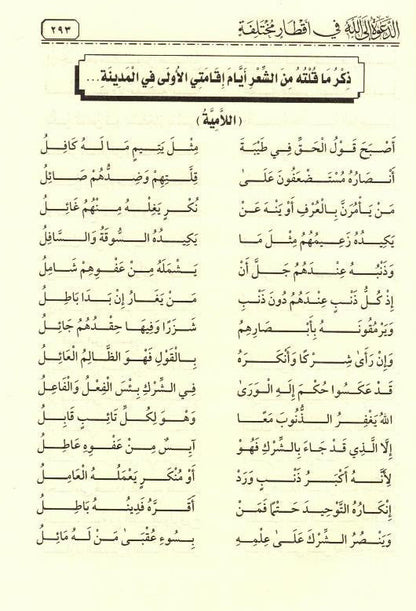 الدعوة إلى الله في أقطار مختلفة ٢٩٣
ذِكْرُ مَا قُلْتُهُ مِنَ الشِّعْرِ أَيَّامَ إِقَامَتِي الأُولَى فِي الْمَدِينَةِ...
(اللَّامِيَّةُ)
أَصْبَحَ قَوْلُ الْحَقِّ فِي طَيْبَةَ مِثْلَ يَتِيمٍ مَا لَهُ كَافِلُ
أَنْصَارُهُ مُسْتَضْعَفُونَ عَلَى قِلَّتِهِمْ وَضِدُّهُمْ صَائِلُ
مَنْ يَأْمُرَنْ بِالْعُرْفِ أَوْ يَنْهَ عَنْ نُكْرٍ يَغْلِهُ مِنْهُمُ غَائِلُ
يَكِيدُهُ زَعِيمُهُمْ مِثْلَ مَا يَكِيدُهُ السُّوقَةُ وَالسَّافِلُ
وَذَنْبُهُ عِنْدَهُمُ جَلَّ أَنْ يَشْمَلَهُ مِنْ عَفْوِهِمْ شَامِلُ
إِذْ كُلُّ ذَنْبٍ عِنْدَهُمْ دُونَ ذَنْبِ مَنْ يَغَارُ إِنْ بَدَا بَاطِلُ
وَيَرْمُقُونَهُ بِأَبْصَارِهِمْ شَزْرًا وَفِيهَا حِقْدُهُمْ جَائِلُ
وَإِنْ رَأَى شِرْكًا وَأَنْكَرَهُ بِالْقَوْلِ فَهْوَ الظَّالِمُ الْعَائِلُ
قَدْ عَكَسُوا حُكْمَ إِلَهِ الْوَرَى فِي الشِّرْكِ بِئْسَ الْفِعْلُ وَالْفَاعِلُ
اللهُ يَغْفِرُ الذُّنُوبَ مَعًا وَهْوَ لِكُلِّ تَائِبٍ قَابِلُ
إِلَّا الَّذِي قَدْ جَاءَ بِالشِّرْكِ فَهْوَ آيِسٌ مِنْ عَفْوِهِ عَاطِلُ
لِأَنَّهُ أَكْبَرُ ذَنْبٍ وَرَدْ أَوْ مُنْكَرٍ يَعْمَلُهُ الْعَامِلُ
إِنْكَارُهُ التَّوْحِيدَ حَتْمًا فَمَنْ أَقَرَّهُ فَدِينُهُ بَاطِلُ
وَيَنْصُرُ الشِّرْكَ عَلَى عِلْمِهِ بِسُوءِ عُقْبَى مَنْ لَهُ مَائِلُ